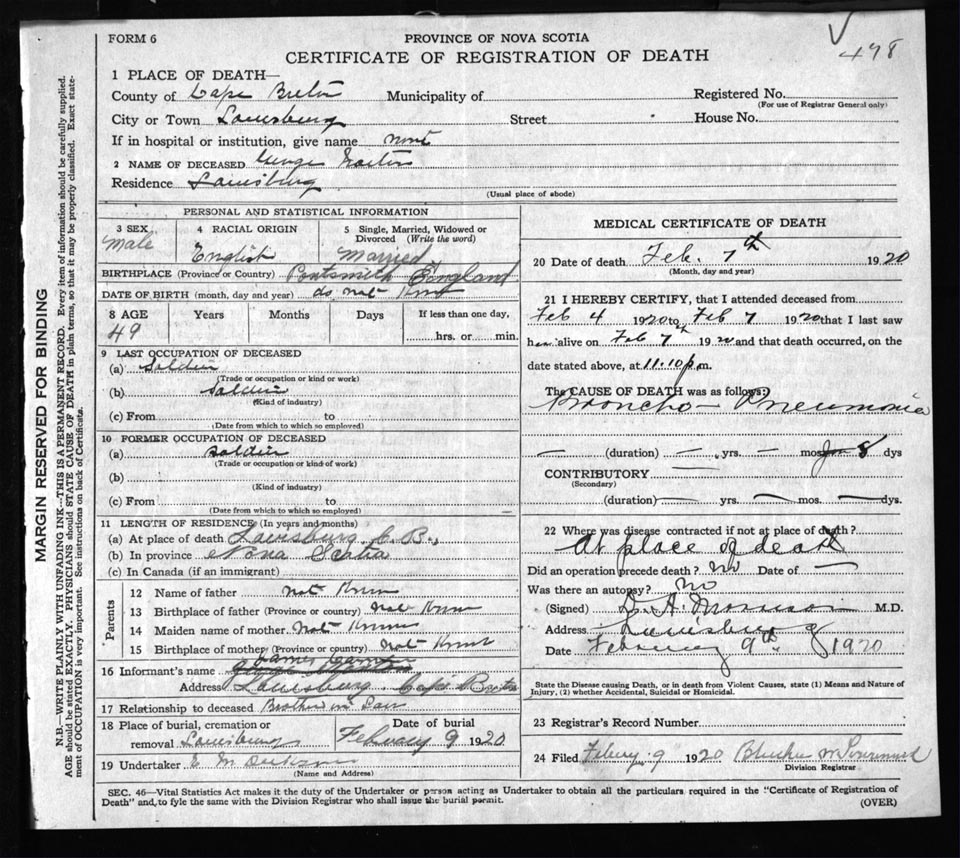 FORM 6
PROVINCE OF NOVA SCOTIA
498
CERTIFICATE OF REGISTRATION OF DEATH
1 PLACE OF DEATH—
County of Cape Breton Municipality of Registered No.
(For use of Registrar General only)
City or Town Louisburg Street House No.
If in hospital or institution, give name
2 NAME OF DECEASED
Residence Louisburg
(Usual place of abode)
PERSONAL AND STATISTICAL INFORMATION
3 SEX 4 RACIAL ORIGIN 5 Single, Married, Widowed or Divorced (Write the word)
Male English Married
BIRTHPLACE (Province or Country) Portsmith England
DATE OF BIRTH (month, day and year) do not Know
8 AGE Years Months Days If less than one day,
49 hrs. or min.
9 LAST OCCUPATION OF DECEASED
(a) Soldier
(Trade or occupation or kind or work)
(b) Soldier
(Kind of industry)
(c) From to
(Date from which to which so employed)
10 FORMER OCCUPATION OF DECEASED
(a) Soldier
(Trade or occupation or kind of work)
(b)
(Kind of industry)
(c) From to
(Date from which to which so employed)
11 LENGTH OF RESIDENCE (In years and months)
(a) At place of death Louisburg C. B.,
(b) In province Nova Scotia
(c) In Canada (if an immigrant)
Parents
12 Name of father not Known
13 Birthplace of father (Province or country) not Known
14 Maiden name of mother Not Known
15 Birthplace of mother (Province or country) not Known
16 Informant's name James
Address Louisburg Cape Breton
17 Relationship to deceased Brother in Law
18 Place of burial, cremation or removal Louisburg
Date of burial
February 9 1920
19 Undertaker
(Name and Address)
MEDICAL CERTIFICATE OF DEATH
20 Date of death Feb. 7th 1920
(Month, day and year)
21 I HEREBY CERTIFY, that I attended deceased from
Feb 4 1920 to Feb 7 1920 that I last saw
h alive on Feb 7th 19 and that death occurred, on the
date stated above, at 11.10 p.m.
The CAUSE OF DEATH was as follows:
Broncho- Pneumonia
— (duration) — yrs. — mos. 8 dys
CONTRIBUTORY —
(Secondary)
(duration) — yrs. — mos. — dys.
22 Where was disease contracted if not at place of death?
At place of death
Did an operation precede death? No Date of —
Was there an autopsy? No
(Signed) Morrison M.D.
Address Louisburg
Date February 9th. 1920
State the Disease causing Death, or in death from Violent Causes, state (1) Means and Nature of
Injury, (2) whether Accidental, Suicidal or Homicidal.
23 Registrar's Record Number
24 Filed 9 1920
Division Registrar
SEC. 46—Vital Statistics Act makes it the duty of the Undertaker or person acting as Undertaker to obtain all the particulars required in the "Certificate of Registration of
Death" and, to fyle the same with the Division Registrar who shall issue the burial permit.
(OVER)
MARGIN RESERVED FOR BINDING
N.B.—WRITE PLAINLY WITH UNFADING INK—THIS IS A PERMANENT RECORD. Every item of information should be carefully supplied.
AGE should be stated EXACTLY. PHYSICIANS should STATE CAUSE OF DEATH in plain terms, so that it may be properly classified. Exact state-
ment of OCCUPATION is very important. See instructions on back of Certificate.